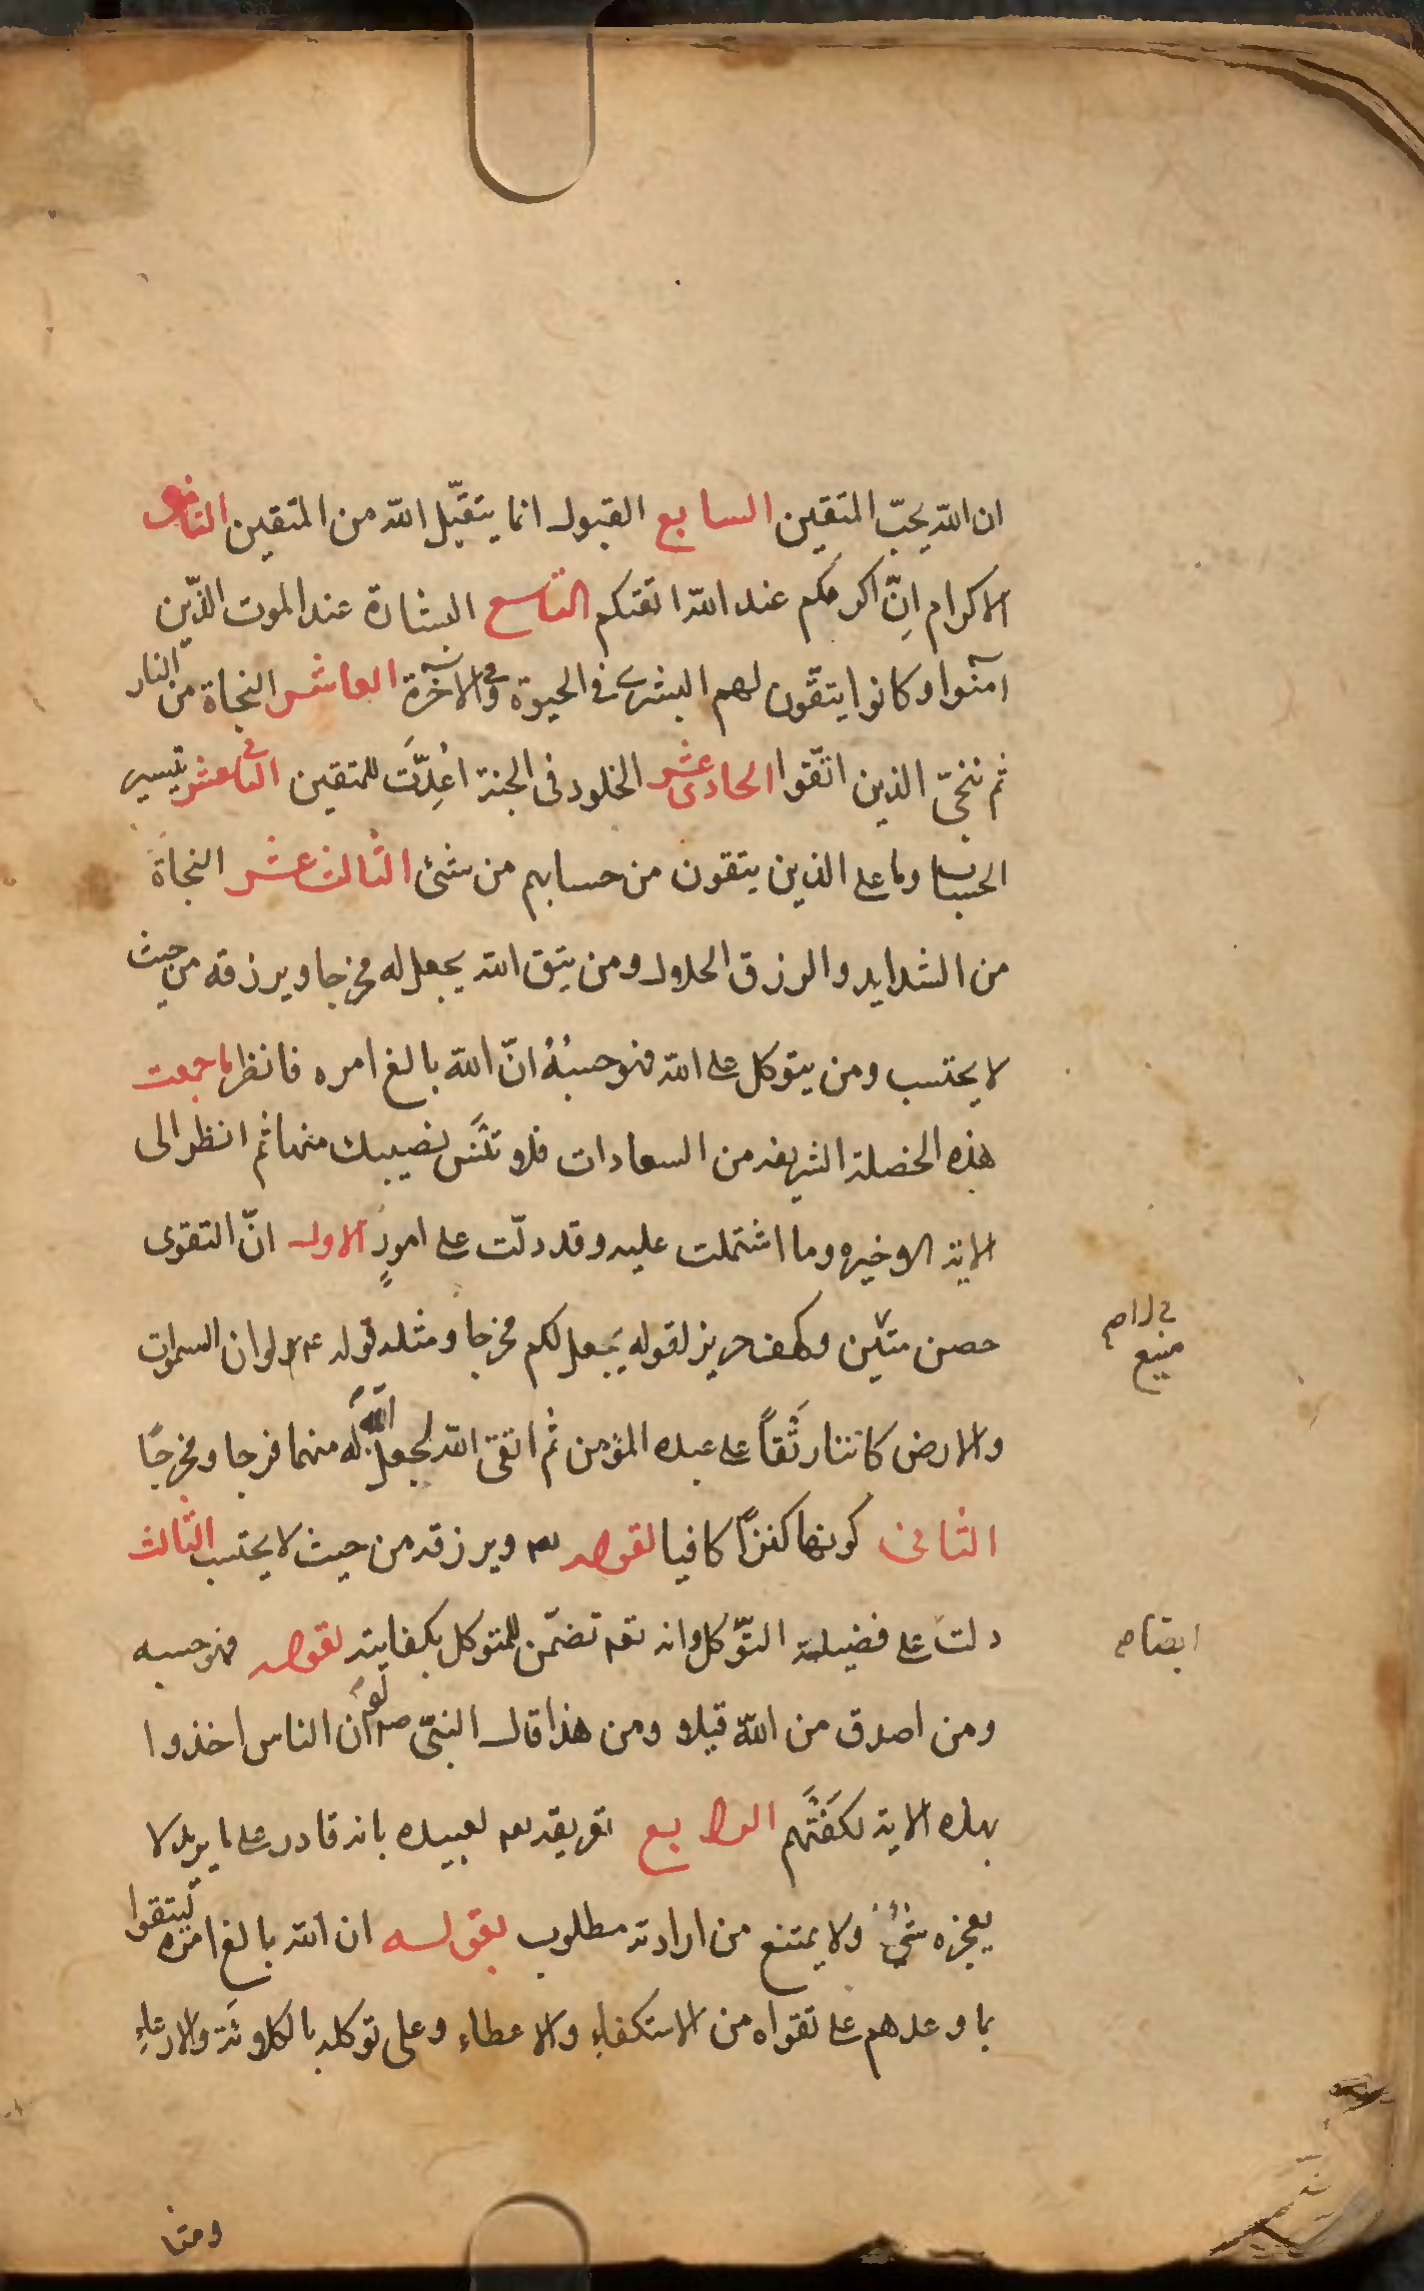 ان الله يحبّ المتقين السابع القبول انما يتقبّل الله من المتقين الثامن
الاكرام اِنّ اكرمكم عند الله اتقيكم التاسع البشارة عند الموت الذّين
آمنوا وكانوا يتقّون لهم البشرى فى الحيوة وفى الآخرة العاشر النجاة من النار
ثم ننجّى الذين اتّقوا الحادى عشر الخلود فى الجنة اُعِدَّت للمتقين الثانى عشر تيسير
الحساب وما على الذين يتقون من حسابهم من شئ الثالث عشر النجاة
من الشدايد والرزق الحلال ومن يتق الله يجعل له مخرجا ويرزقه من حيث
لا يحتسب ومن يتوكل على الله فهو حسبُهُ انّ الله بالغ امره فانظر ما جمعت
هذه الخصلة الشريفة من السعادات فلا تنَسَ نصيبك منها ثم انظر الى
الاية الاخيره وما اشتملت عليه وقد دلّت على امورٍ الاول انّ التقوى
حصن متين وكهف حريز لقوله يجعل لكم مخرجا ومثله قوله عم لو ان السموات
والارض كانتا رَتْقاً على عبده المؤمن ثم اتقى الله لجعل الله له منهما فرجا ومخرجًا
الثانى كونها كنزًا كافيا لقوله تعم ويرزقه من حيث لا يحتسب الثالث
دلت على فضيلة التّوكل وانه تعم تضمّن للمتوكل بكفايته لقوله فهو حسبه
ومن اصدق من الله قيلا ومن هذا قال النبىّ ص لو انّ الناس اخذوا
بهذه الاية لكَفَتْهم الرابع تعريفه تعم لعبيده بانه قادر على ما يريد لا
يعجزه شئٌ ولا يمتنع من ارادته مطلوب بقوله ان الله بالغ امره ليتقوا
بما وعدهم على تقواه من الاستكفاءِ والاعطاء وعلى توكله بالكلائَة والارعاءِ
منيع
ايضا م
ومتا